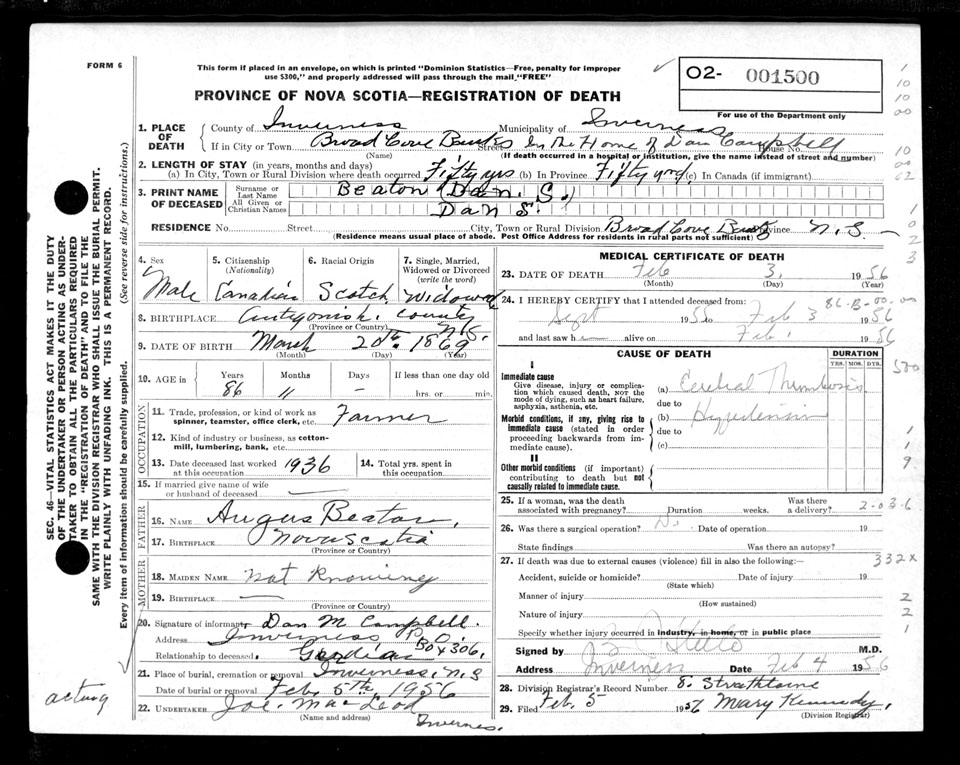 FORM 6
This form if placed in an envelope, on which is printed "Dominion Statistics—Free, penalty for improper
use $300," and properly addressed will pass through the mail "FREE"
O2- 001500
For use of the Department only
PROVINCE OF NOVA SCOTIA—REGISTRATION OF DEATH
1. PLACE OF DEATH
County of Inverness Municipality of Inverness
If in City or Town Broad Cove Banks Street In the Home of Dan Campbell House No.
(Name) (If death occurred in a hospital or institution, give the name instead of street and number)
2. LENGTH OF STAY (in years, months and days)
(a) In City, Town or Rural Division where death occurred Fifty yrs (b) In Province Fifty yrs (c) In Canada (if immigrant)
3. PRINT NAME OF DECEASED
Surname or Last Name Beaton (Dan. S.)
All Given or Christian Names Dan S.
RESIDENCE No. Street City, Town or Rural Division Broad Cove Banks Province N. S.
(Residence means usual place of abode. Post Office Address for residents in rural parts not sufficient)
4. Sex 5. Citizenship (Nationality) 6. Racial Origin 7. Single, Married, Widowed or Divorced (write the word)
Male Canadian Scotch Widowed
8. BIRTHPLACE Antigonish. County N.S.
(Province or Country)
9. DATE OF BIRTH March 20th. 1869
(Month) (Day) (Year)
10. AGE in Years Months Days If less than one day old
86 11 — hrs. or min.
OCCUPATION
11. Trade, profession, or kind of work as
spinner, teamster, office clerk, etc. Farmer
12. Kind of industry or business, as cotton-
mill, lumbering, bank, etc.
13. Date deceased last worked at this occupation 1936 14. Total yrs. spent in this occupation
15. If married give name of wife
or husband of deceased —
FATHER
16. NAME Angus Beaton,
17. BIRTHPLACE Nova Scotia
(Province or Country)
MOTHER
18. MAIDEN NAME not Knowing
19. BIRTHPLACE —
(Province or Country)
20. Signature of informant Dan M Campbell.
Address Inverness P.O. Box 306.
Relationship to deceased
21. Place of burial, cremation or removal Inverness. N.S
Date of burial or removal Feb. 5th. 1956
22. UNDERTAKER Joe. MacLeod
(Name and address) Inverness.
acting
MEDICAL CERTIFICATE OF DEATH
23. DATE OF DEATH Feb 3, 1956
(Month) (Day) (Year)
86-B-00-00
24. I HEREBY CERTIFY that I attended deceased from:
Sept 1955 to Feb 3 1956
and last saw h alive on Feb 1 1956
CAUSE OF DEATH DURATION
YRS. MOS. DYS.
I
Immediate cause
Give disease, injury or complica-
tion which caused death, NOT the
mode of dying, such as heart failure,
asphyxia, asthenia, etc.
(a) Cerebral Thrombosis
due to
Morbid conditions, if any, giving rise to
immediate cause (stated in order
proceeding backwards from im-
mediate cause).
(b) Hypertension
due to
(c)
II
Other morbid conditions (if important)
contributing to death but not
causally related to immediate cause.
25. If a woman, was the death
associated with pregnancy? Duration weeks. Was there a delivery? 2-03-6
26. Was there a surgical operation? No Date of operation 19
State findings Was there an autopsy?
27. If death was due to external causes (violence) fill in also the following:— 332X
Accident, suicide or homicide? Date of injury 19
(State which)
Manner of injury
(How sustained)
Nature of injury
Specify whether injury occurred in industry, in home, or in public place
Signed by M.D.
Address Inverness Date Feb 4 1956
28. Division Registrar's Record Number 8. Strathlorne
29. Filed Feb. 5 1956 Mary Kennedy,
(Division Registrar)
SEC. 46—VITAL STATISTICS ACT MAKES IT THE DUTY
OF THE UNDERTAKER OR PERSON ACTING AS UNDER-
TAKER TO OBTAIN ALL THE PARTICULARS REQUIRED
IN THE "REGISTRATION OF DEATH" AND TO FILE THE
SAME WITH THE DIVISION REGISTRAR WHO SHALL ISSUE THE BURIAL PERMIT.
WRITE PLAINLY WITH UNFADING INK. THIS IS A PERMANENT RECORD.
Every item of information should be carefully supplied. (See reverse side for instructions.)
1
10
10
00
10
00
62
1
0
2
3
500
1
1
9
2
2
1